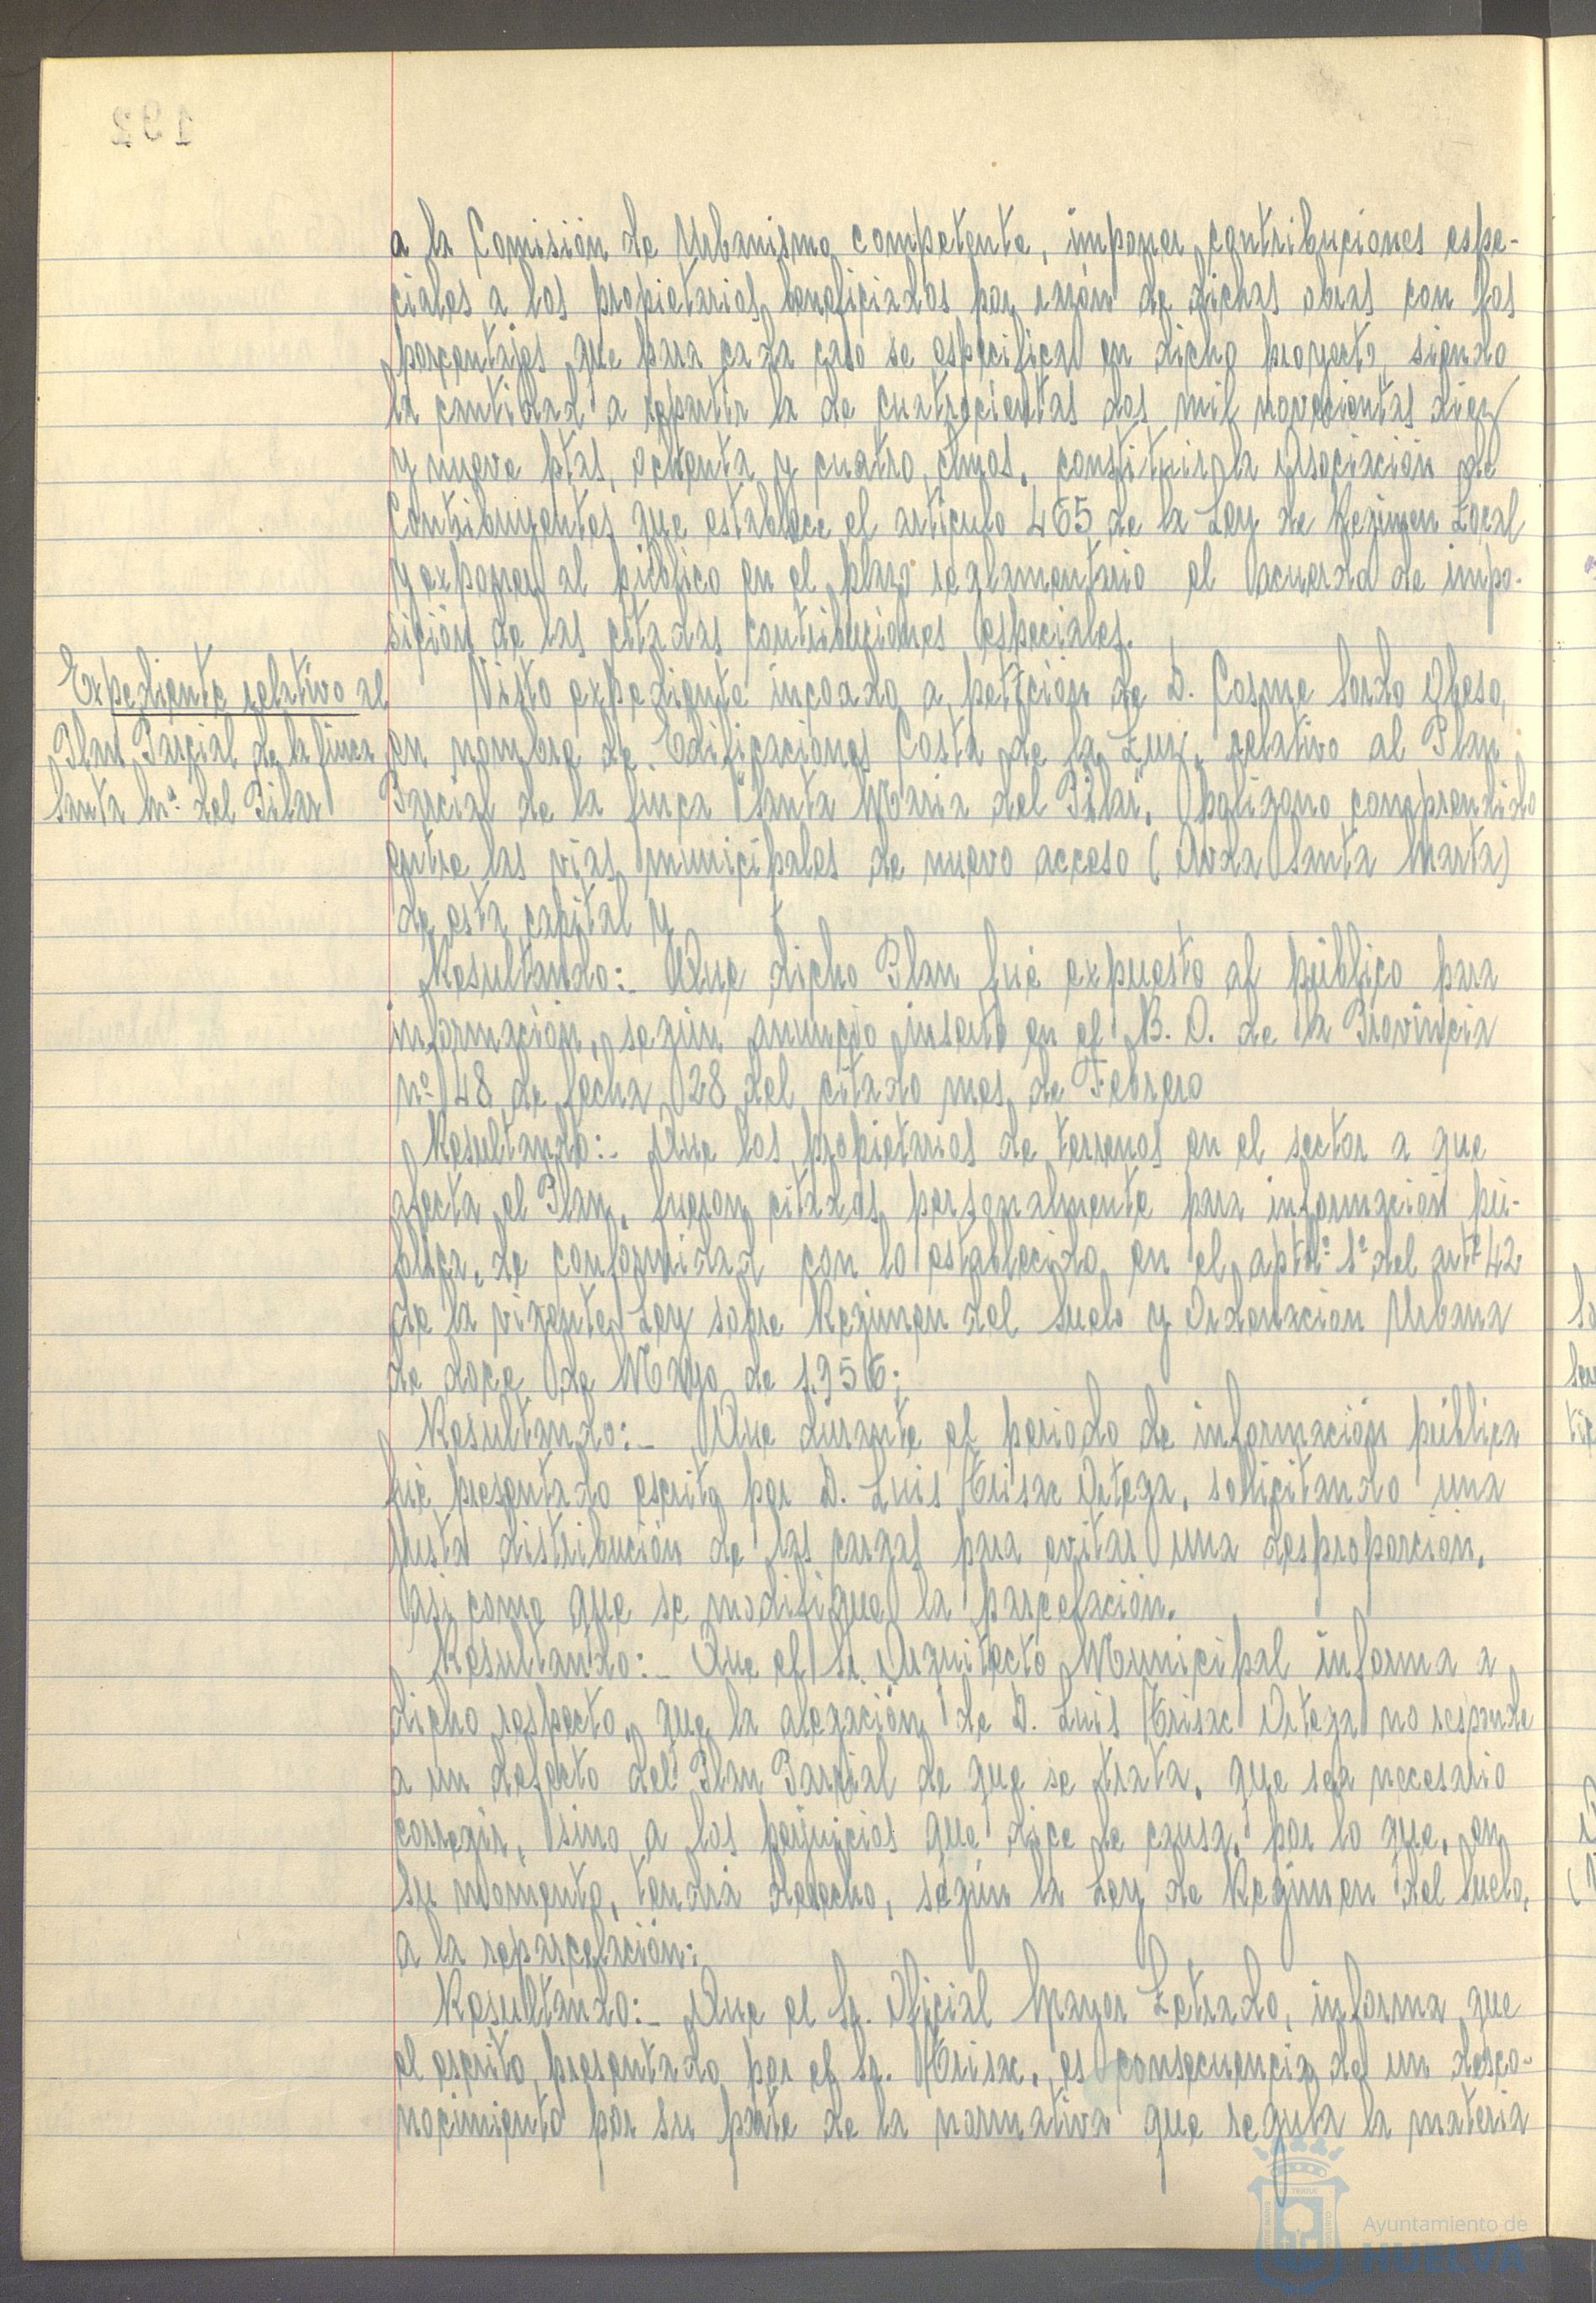 a la Comisión de Urbanismo competente, imponer contribuciones espe-
ciales a los propietarios beneficiados por razón de dichas obras con los
porcentajes que para cada caso se especifica en dicho proyecto, siendo
la cantidad a repartir la de cuatrocientas dos mil novecientas diez
y nueve ptas, ochenta y cuatro ctmos, constituir la Asociación de
Contribuyentes que establece el artículo 465 de la Ley de Regimen Local
y exponer al público en el plazo reglamentario el acuerdo de impo-
sición de las citadas contribuciones especiales.
Expediente relativo al
Plan Parcial de la finca
Santa Mª del Pilar
Visto expediente incoado a petición de D. Cosme Sordo Obeso,
en nombre de Edificaciones Costa de la Luz, relativo al Plan
Parcial de la finca "Santa Maria del Pilar", poligono comprendido
entre las vias municipales de nuevo acceso (Avda Santa Marta)
de esta capital y
Resultando:- Que dicho Plan fué expuesto al público para
información, según anuncio inserto en el B. O. de la Provincia
nº 48 de fecha 28 del citado mes de Febrero
Resultando:- Que los propietarios de terrenos en el sector a que
afecta el Plan, fueron citados personalmente para información pú-
blica, de conformidad con lo establecido en el aptdº 1º del artº 42
de la vigente Ley sobre Regimen del Suelo y Ordenacion Urbana
de doce de Mayo de 1.956;
Resultando:- Que durante el periodo de información pública
fué presentado escrito por D. Luis Ortega, solicitando una
justa distribución de las cargas para evitar una desproporción,
asi como que se modifique la parcelación.
Resultando:- Que el Sr. Arquitecto Municipal informa a
dicho respecto, que la alegación de D. Luis Ortega no responde
a un defecto del Plan Parcial de que se trata, que sea necesario
corregir, sino a los perjuicios que dice le causa, por lo que, en
su momento, tendrá derecho, según la Ley de Regimen del Suelo,
a la reparcelación;
Resultando:- Que el Sr. Oficial Mayor Letrado, informa que
el escrito presentado por el Sr. es consecuencia de un desco-
nocimiento por su parte de la normativa que regula la materia
192
Ayuntamiento de
HUELVA